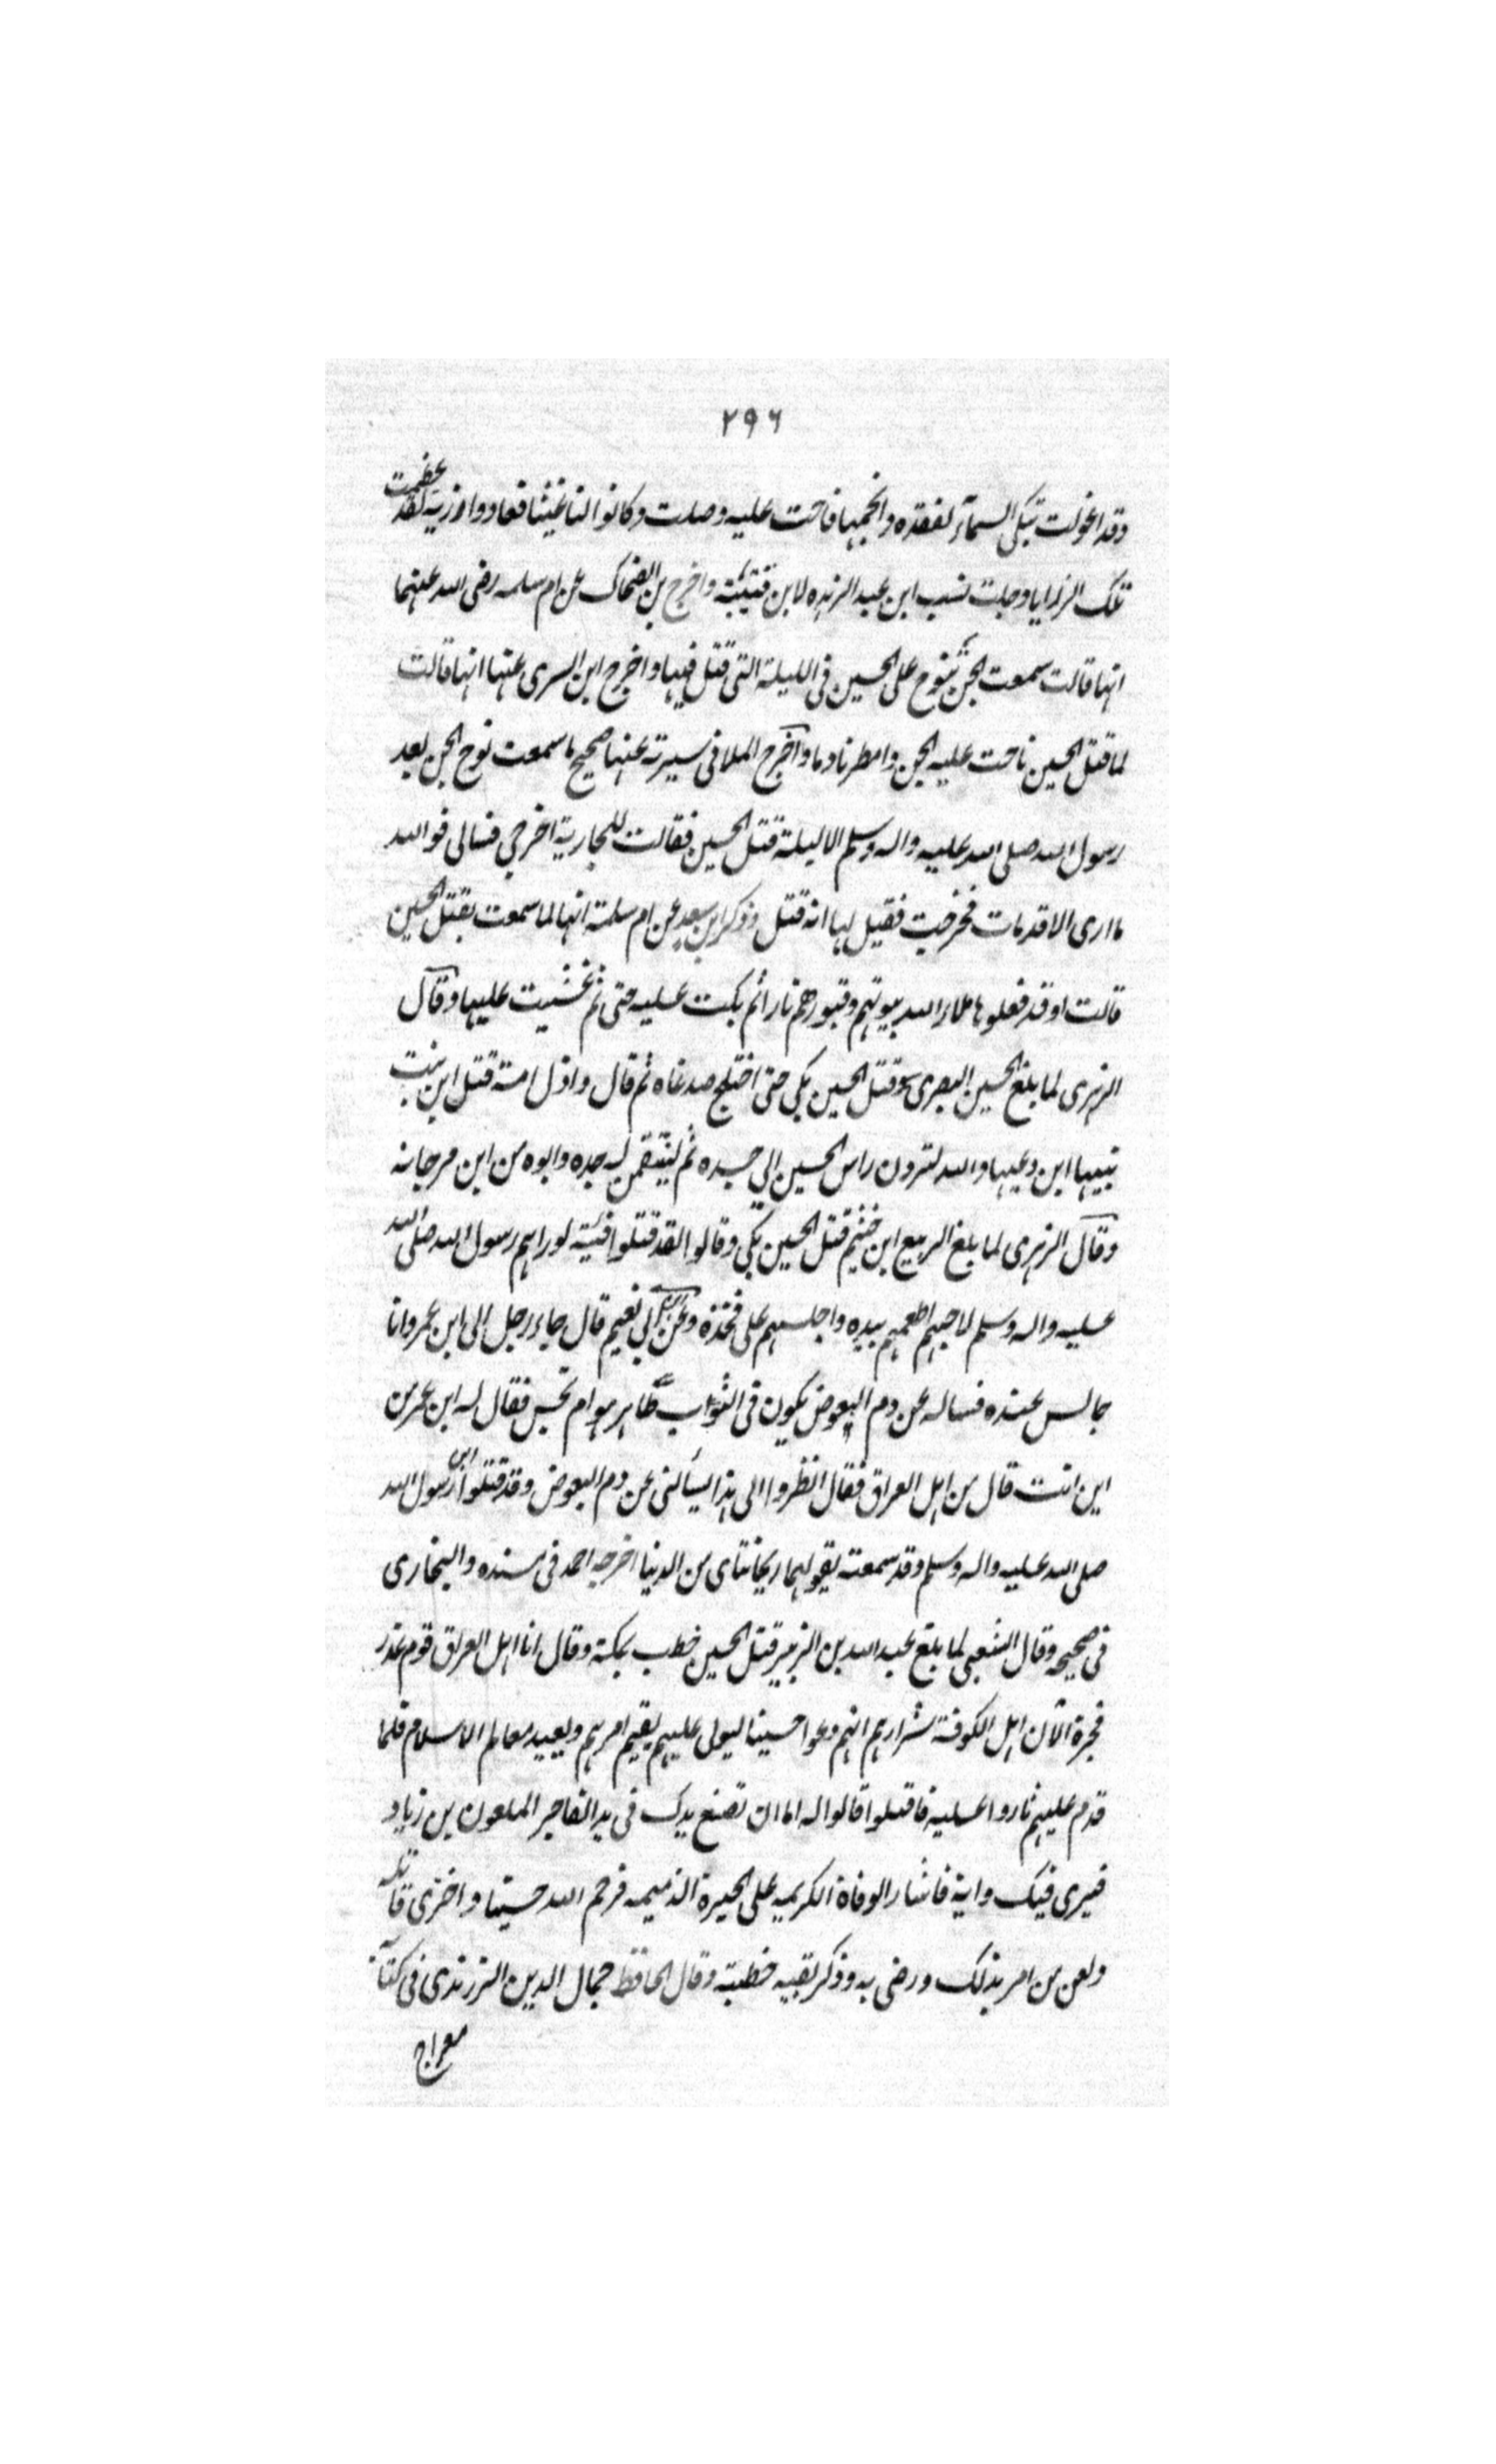 ٢٩٦
وقد اعولت تبکی السمآء لفقده وانجمها فناحت علیه وصلت وکانوا لنا غیثا فعادوا رزیة لقد عظمت
تلک الرزایا وجلت نسب ابن عبد البر هذه لابن قتیبة واخرج بن الضحاک عن ام سلمه رضی الله عنهما
انها قالت سمعت الجن تنوح علی الحسین فی اللیلة التی قتل فیها واخرج ابن السری عنها انها قالت
لما قتل الحسین ناحت علیه الجن وامطرنا دما واخرج الملا فی سیرته عنها صحیح ما سمعت نوح الجن بعد
رسول الله صلی الله علیه واله وسلم الا لیلة قتل الحسین فقالت للجاریة اخرجی فسالی فوالله
ما اری الا قد مات فخرجت فقیل لها انه قتل وذکر ابن سعد عن ام سلمة انها لما سمعت بقتل الحسین
قالت او قد فعلوها ملاء الله بیوتهم وقبورهم نارا ثم بکت علیه حتی ثم غشیت علیها وقال
الزهری لما بلغ الحسین البصری قتل الحسین بکی حتی اختلج صدغاه ثم قال واذل امة قتل ابن بنت
نبیها ابن دعیها والله لتردن راس الحسین الی جسده ثم لینتقمن له جده وابوه من ابن مرجانه
وقال الزهری لما بلغ الربیع ابن خثیم قتل الحسین بکی وقالوا لقد قتلوا فتیة لو راهم رسول الله صلی الله
علیه واله وسلم لاحبهم اطعمهم بیده واجلسهم علی فخذه وعن ابی نعیم قال جاء رجل الی ابن عمر وانا
جالس عنده فساله عن دم البعوض یکون فی الثوب طاهر هو ام نجس فقال له ابن عمر من
این انت قال من اهل العراق فقال انظروا الی هذا یسألنی عن دم البعوض وقد قتلوا ابن رسول الله
صلی الله علیه واله وسلم وقد سمعته یقول هما ریحانتای من الدنیا اخرجه احمد فی مسنده والبخاری
فی صحیحه وقال الشعبی لما بلغ عبد الله بن الزبیر قتل الحسین خطب بمکة وقال انا اهل العراق قوم غدر
فجرة الا ان اهل الکوفة شرارهم انهم دعوا حسینا لیولی علیهم یقیم امرهم ویعید معالم الاسلام فلما
قدم علیهم ثاروا علیه فاقتلوا قالوا له اما ان تضع یدک فی ید الفاجر الملعون بن زیاد
فیری فیک رایة فاختار الوفاة الکریمه علی الحیرة الذمیمه فرحم الله حسینا واخزی قاتله
ولعن من امر بذلک ورضی به وذکر بقیه خطبته وقال الحافظ جمال الدین الزرندی فی کتابه
معراج